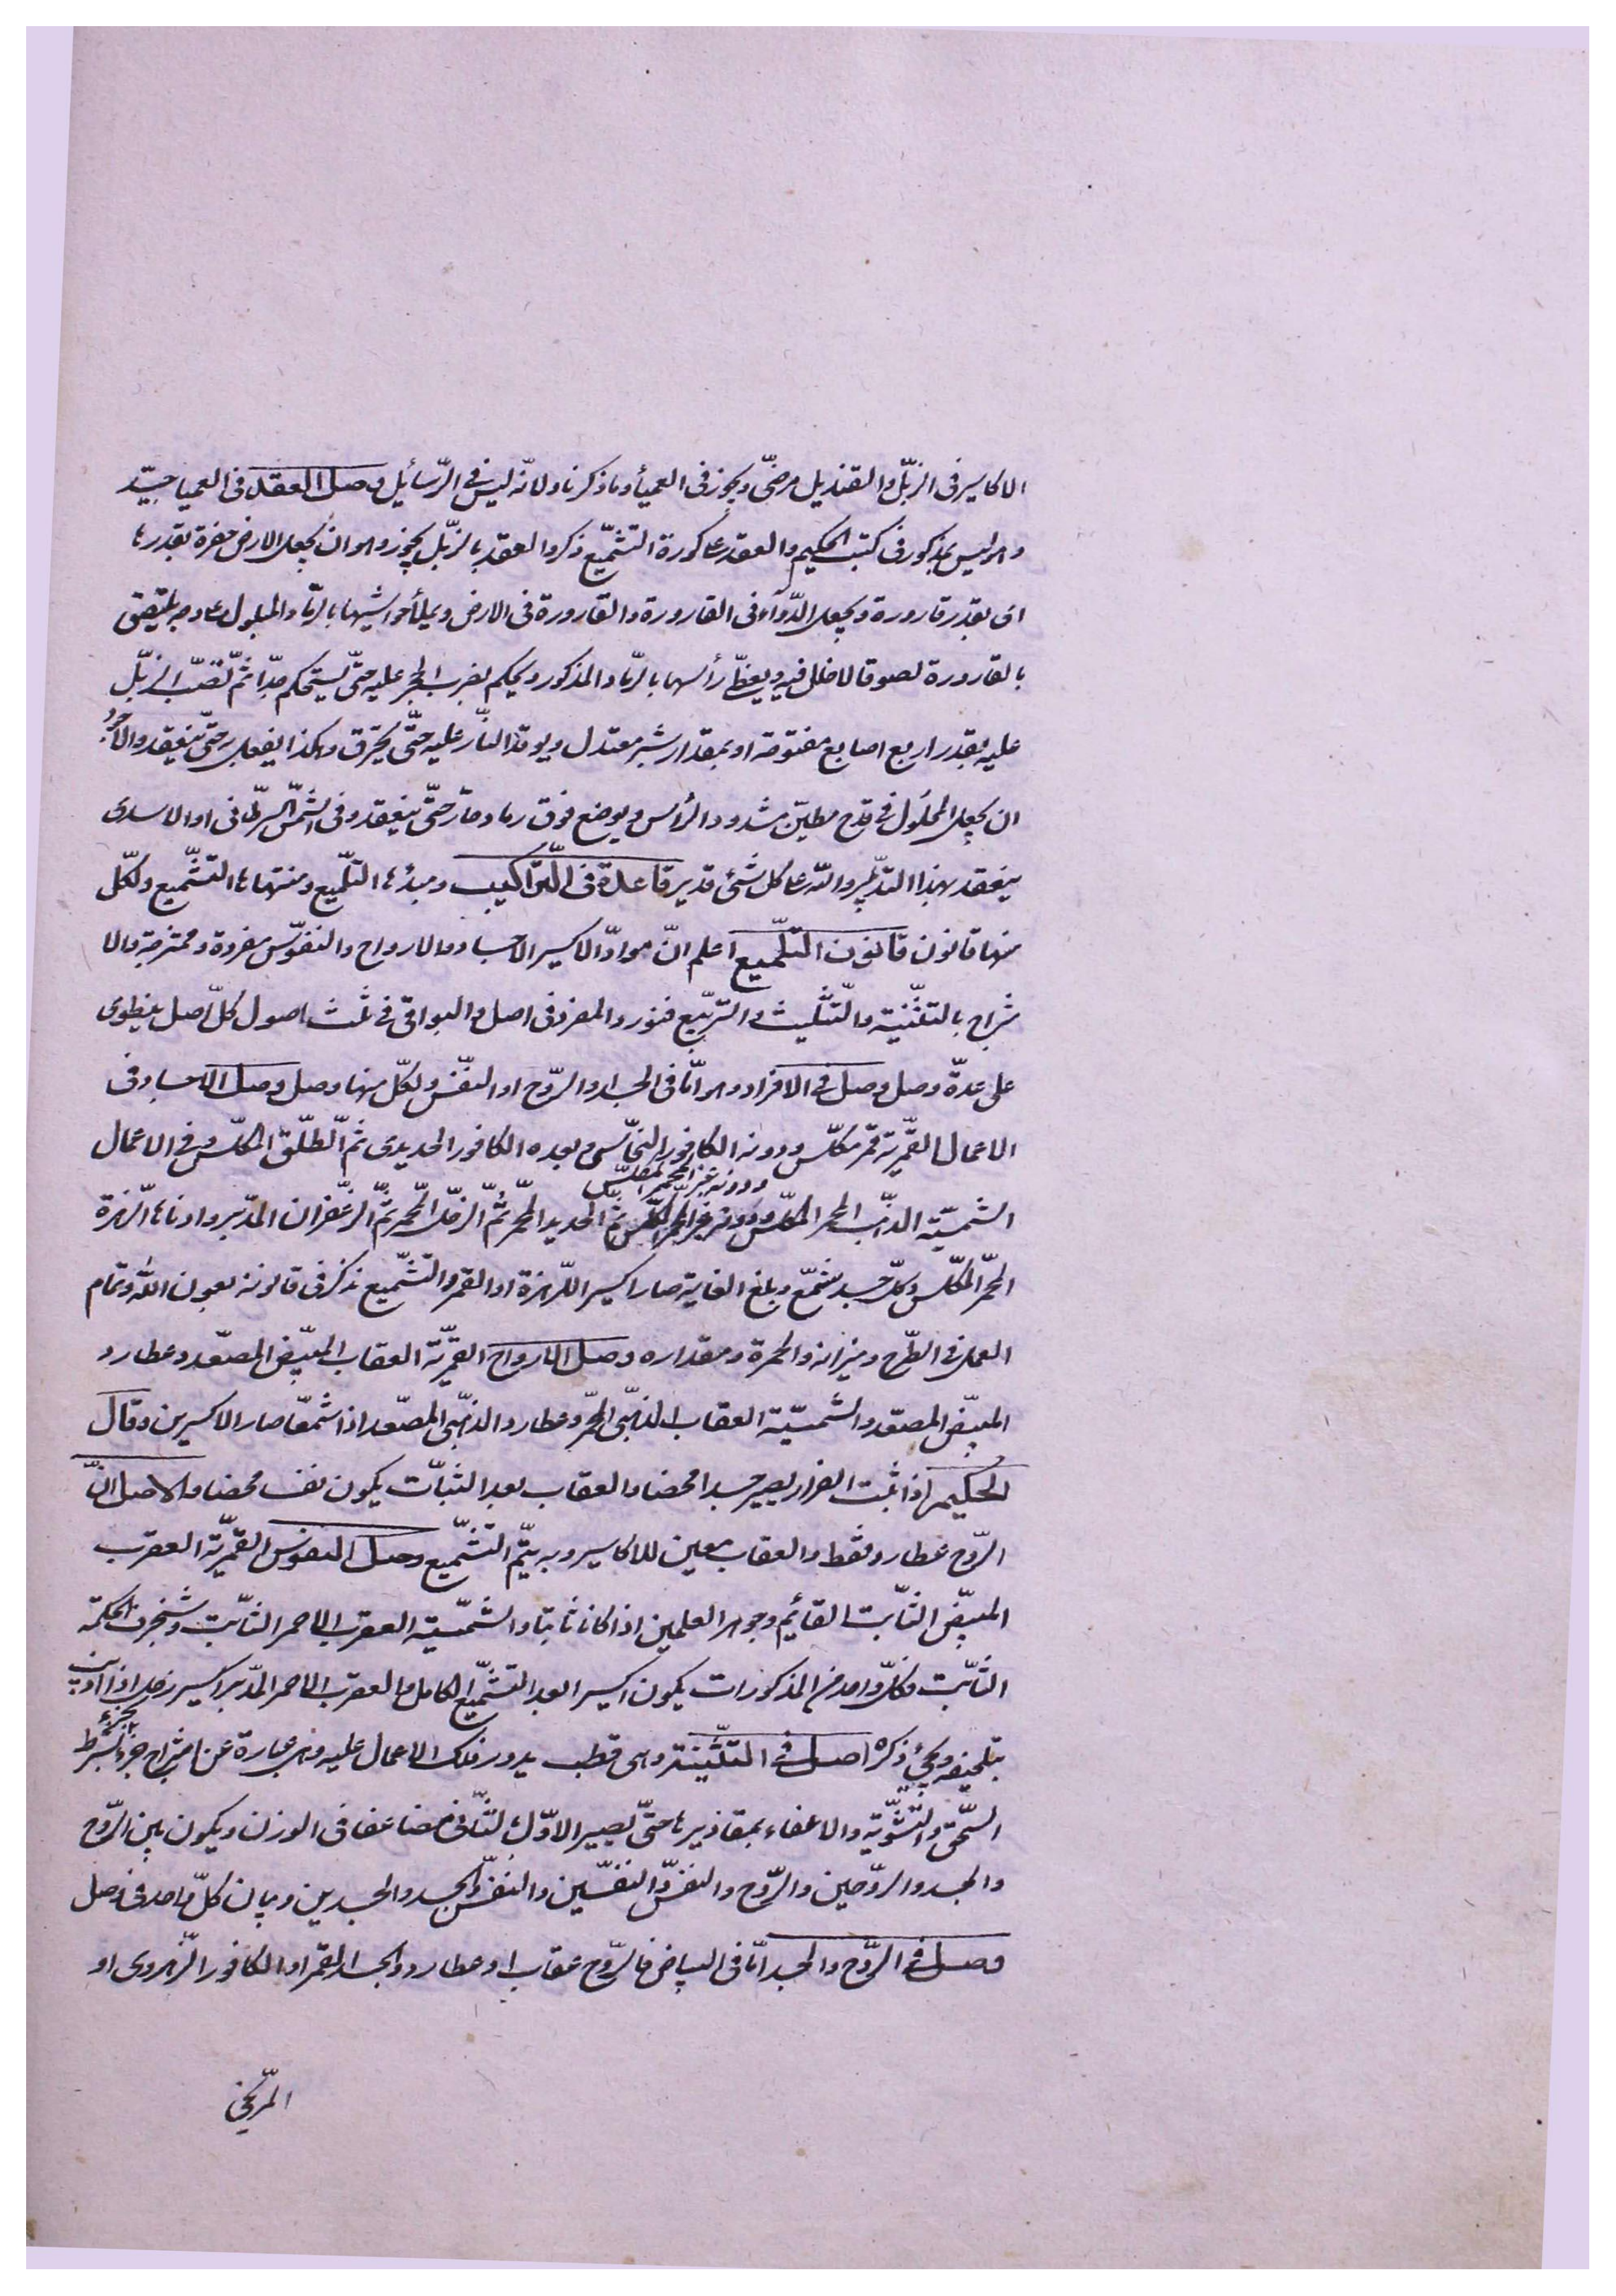 الاكاسير فى الزبّل والقنديل مرضّى ويجوز فى العميأ وما ذكرناه لانّه ليس فى الرّسائيل وصل العقد فى العميا جيّد
وهو ليس بمذكور فى كتب الحكيم والعقد عا كورة التشّميع ذكر والعقد بالزبّل يجوز وهو ان يجعل الارض حفرة بقدرها
اى بقدر قارورة ويجعل الدّوآء فى القارورة والقارورة فى الارض ويملأ حواشيها بالرّماد المبلول عا وجه يلتصق
بالقارورة لصوقا لا خلل فيه ويغطّى رأسها بالرّماد المذكور ويحكم بضرب الحجر عليه حتّى يستحكم جدّا ثمّ تصّب الزبّل
عليه بقدر اربع اصابع مفتوحة او بمقدار شبر معتدل ويوقد النّار عليه حتّى يحترق وهكذا يفعل به حتّى ينعقد والاجود
ان يجعل المحلول فى قدح مطيّن مشدود الرأس ويوضع فوق رماد حارّ حتّى ينعقد وفى الشمّس السرّطانى او الاسدى
ينعقد بهذا التدّبير والله عا كل شئ قدير قاعدة فى التّراكيب ومبدئها التلّميع ومنتهاها التشّميع ولكلّ
منها قانون قانون التلّميع اعلم انّ موادّ الاكسير الاجساد والارواح والنفوّس مفردة وممتزجة والا
متزاج بالتثّنية والتّثليث والترّبيع فنورد المفرد فى اصل والبواقى فى ثلث اصول كلّ اصل ينطوى
على عدّة وصل وصل فى الافراد وهو امّا فى الجسد او الرّوح او النفّس ولكلّ منها وصل وصل الاجساد فى
الاعمال القمّرية قمر مكلّس ودونه الكافور النحّاسى وبعده الكافور الحديدى ثمّ الطلّق المكلّس وفى الاعمال
ودونه غير المحمّر المكلّس
الشمسيّة الذهّب المحمر المكلّس ثمّ الحديد المحمّر ثمّ الزحّل المحّمر ثمّ الزعّفران المدّبر وادناها الزّهرة
المحمّر المكلّس وكلّ جسد يشمّع وبلغ الغاية صار اكسير اللزّهرة او القمر والتشّميع نذكر فى قانونه بعون الله وتمام
العمل فى الطّرح وميزانه والحمرة ومقداره وصل الارواح القمريّة العقاب المبيّض المصعّد وعطارد
المبيّض المصعّد والشمسيّة العقاب الذهبّى المحمّر وعطارد الذهبّى المصعّد اذا شمعّا صار الاكسيرين وقال
الحكيم اذا ثبت الفرار يصير جسدا محضا والعقاب بعد الثبّات يكون نفسا محضا والاصل انّ
الرّوح عطارد فقط والعقاب معين للاكاسير وبه يتمّ التشّميع وصل النفوس القمريّة العقرب
المبيّض الثابّت القائيم وجوهر العلمين اذا كانا ثابتا والشمسّية العقرب الاحمر الثابّت وشنجرف الحكمة
الثابّت وكلّ واحد من المذكورات يكون اكسيرا بعد التشّميع الكامل والعقرب الاحمر المدّبر اكسير زحل اذا اذيب
بتلحيفه ويجئ ذكره اصل فى التثّنية وهى قطب يدور فلك الاعمال عليه وهى عبارة عن امتزاج جزء بجزء بشرط
السّحق والتشّوية والاغفاء بمقاديرها حتّى يصير الاوّل للثّانى مضاعفا فى الوزن ويكون بين الرّوح
والجسد والروّحين والرّوح والنفّس والنفسّين والنفّس والجسد والجسدين وبيان كلّ واحد فى وصل
وصل فى الرّوح والجسد امّا فى البياض فالرّوح عقاب او عطارد والجسد القمر او الكافور الزّهروى او
المرّيخى